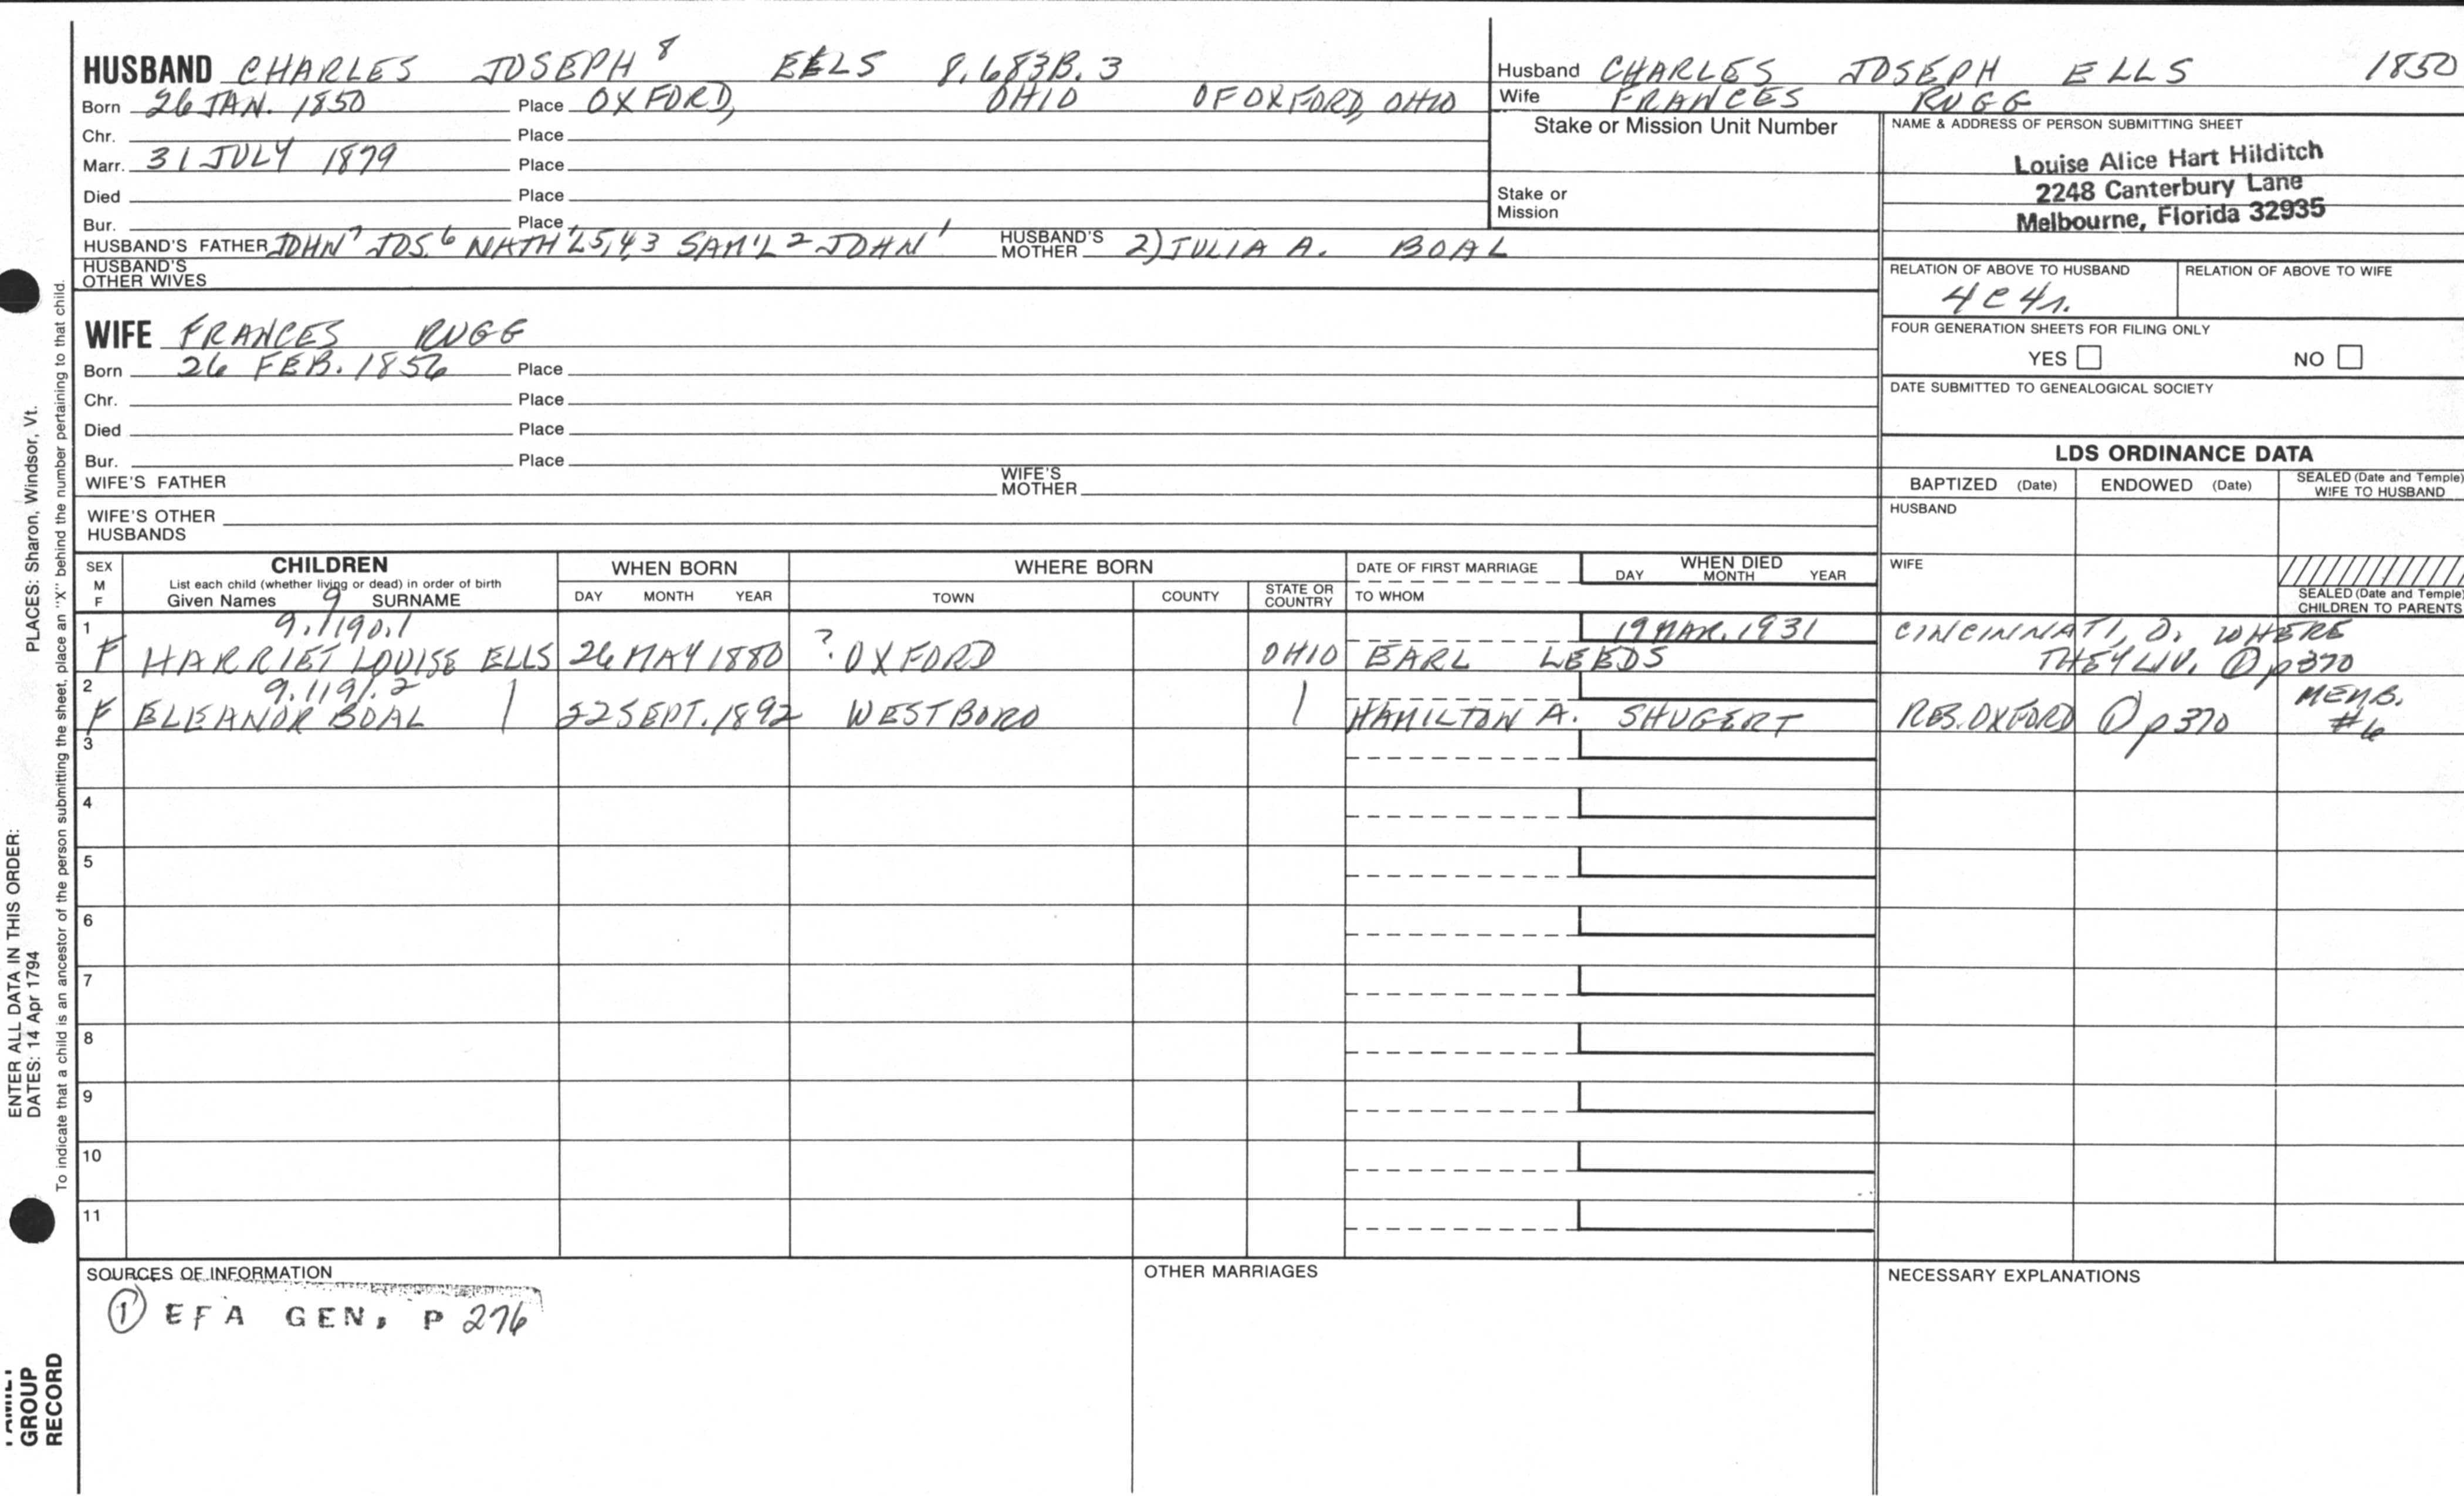 HUSBAND CHARLES JOSEPH 8 EELS 8.683B.3
Born 26 JAN. 1850 Place OXFORD, OHIO OF OXFORD, OHIO
Chr. Place
Marr. 31 JULY 1879 Place
Died Place
Bur. Place
HUSBAND'S FATHER JOHN 7 JOS. 6 NATH'L 5,4,3 SAM'L 2 JOHN 1 HUSBAND'S MOTHER 2) JULIA A. BOAL
HUSBAND'S OTHER WIVES
WIFE FRANCES RUGG
Born 26 FEB. 1856 Place
Chr. Place
Died Place
Bur. Place
WIFE'S FATHER WIFE'S MOTHER
WIFE'S OTHER HUSBANDS
Husband CHARLES JOSEPH ELLS 1850
Wife FRANCES RUGG
Stake or Mission Unit Number
Stake or Mission
NAME & ADDRESS OF PERSON SUBMITTING SHEET
Louise Alice Hart Hilditch
2248 Canterbury Lane
Melbourne, Florida 32935
RELATION OF ABOVE TO HUSBAND RELATION OF ABOVE TO WIFE
4C4r.
FOUR GENERATION SHEETS FOR FILING ONLY
YES NO
DATE SUBMITTED TO GENEALOGICAL SOCIETY
LDS ORDINANCE DATA
BAPTIZED (Date) ENDOWED (Date) SEALED (Date and Temple) WIFE TO HUSBAND
HUSBAND
WIFE
SEALED (Date and Temple) CHILDREN TO PARENTS
SEX M F CHILDREN WHEN BORN WHERE BORN DATE OF FIRST MARRIAGE WHEN DIED
List each child (whether living or dead) in order of birth
Given Names 9 SURNAME DAY MONTH YEAR TOWN COUNTY STATE OR COUNTRY TO WHOM DAY MONTH YEAR
1 9.1190.1 19 MAR. 1931 CINCINNATI, O. WHERE
F HARRIET LOUISE ELLS 26 MAY 1880 ? OXFORD OHIO EARL LEEDS THEY LIV. ① p370
2 9.1191.2 MEMB.
F ELEANOR BOAL | 22 SEPT. 1892 WESTBORO | HAMILTON A. SHUGERT RES. OXFORD ① p370 #6
3
4
5
6
7
8
9
10
11
SOURCES OF INFORMATION OTHER MARRIAGES NECESSARY EXPLANATIONS
① EFA GEN, P 276
ENTER ALL DATA IN THIS ORDER:
DATES: 14 Apr 1794 PLACES: Sharon, Windsor, Vt.
To indicate that a child is an ancestor of the person submitting the sheet, place an "X" behind the number pertaining to that child.
FAMILY
GROUP
RECORD